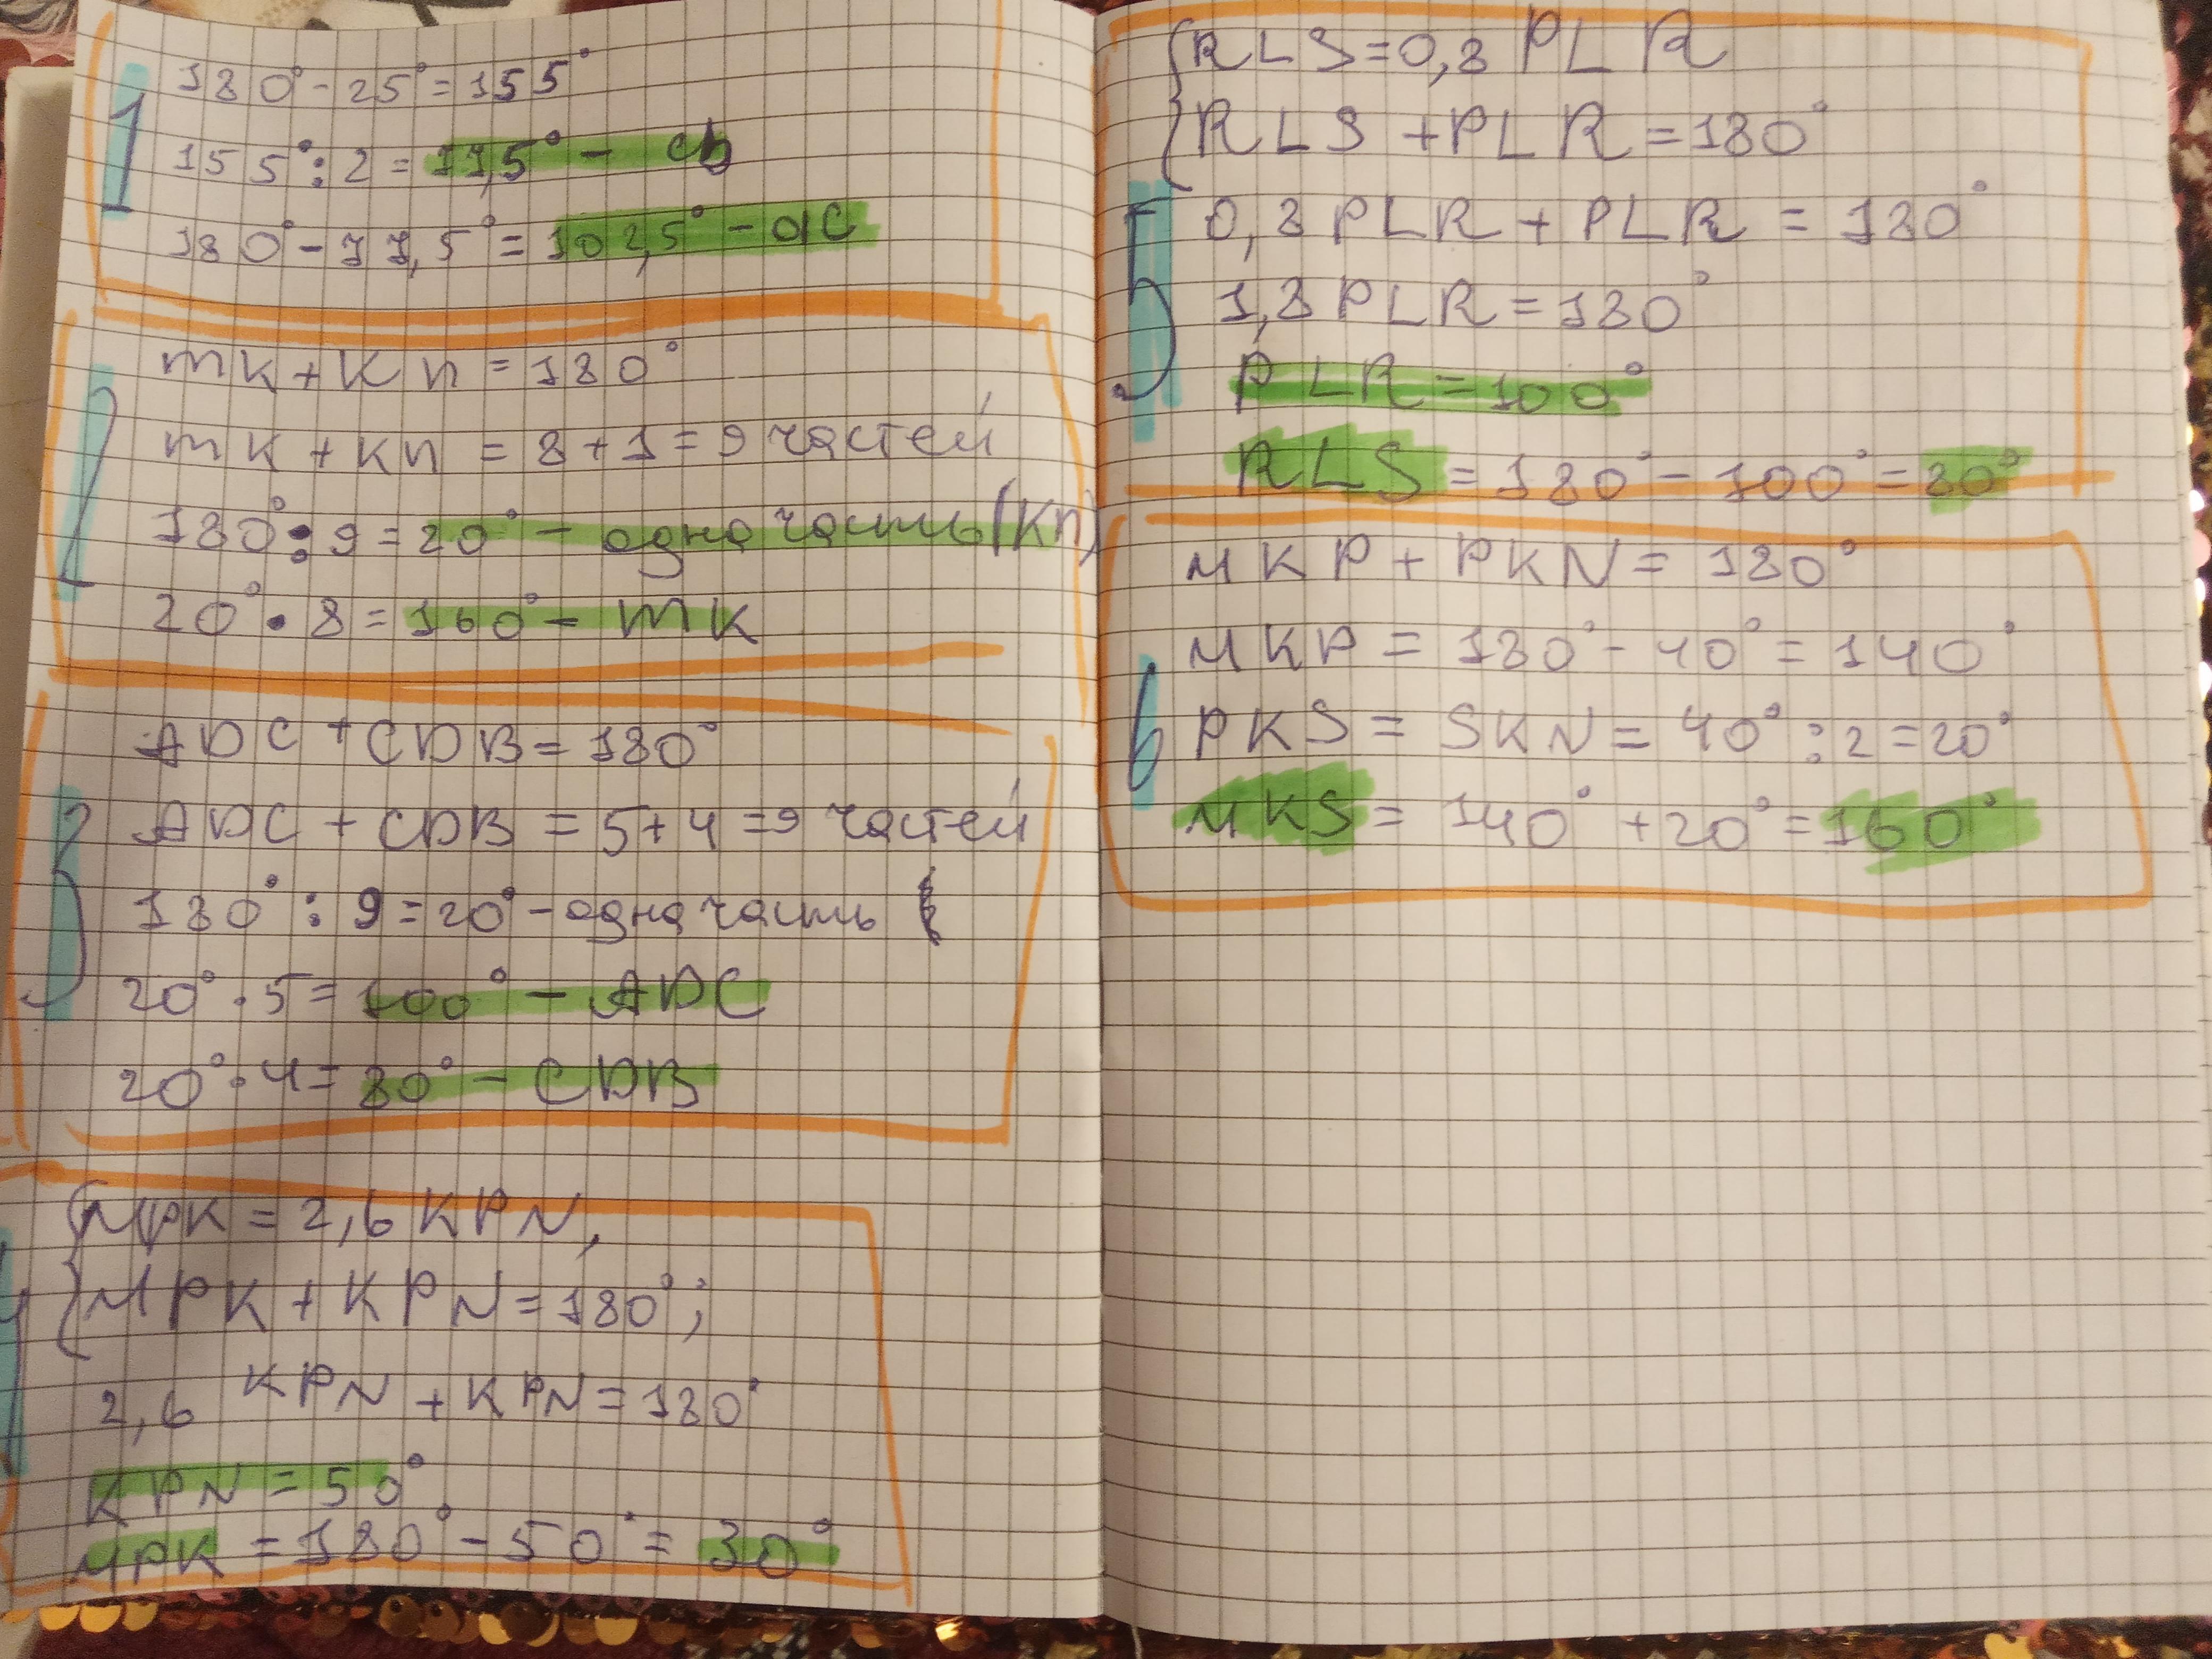 1
180° - 25° = 155°
155° : 2 = 77,5° - cb
180° - 77,5° = 102,5° - ac
2
mk + kn = 180°
mk + kn = 8 + 1 = 9 частей
180° : 9 = 20° - одна часть (kn)
20° • 8 = 160° - mk
3
ADC + CDB = 180°
ADC + CDB = 5 + 4 = 9 частей
180° : 9 = 20° - одна часть
20° · 5 = 100° - ADC
20° · 4 = 80° - CDB
4
{ MPK = 2,6 KPN,
MPK + KPN = 180°;
2,6 KPN + KPN = 180°
KPN = 50°
MPK = 180° - 50° = 30°
5
{ RLS = 0,8 PLR
RLS + PLR = 180°
0,8 PLR + PLR = 180°
1,8 PLR = 180°
PLR = 100°
RLS = 180° - 100° = 80°
6
MKP + PKN = 180°
MKP = 180° - 40° = 140°
PKS = SKN = 40° : 2 = 20°
MKS = 140° + 20° = 160°